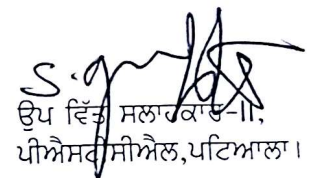 ਉਪ ਵਿੱਤ ਸਲਾਹਕਾਰ-II,
ਪੀਐਸਟੀਸੀਐਲ,ਪਟਿਆਲਾ।